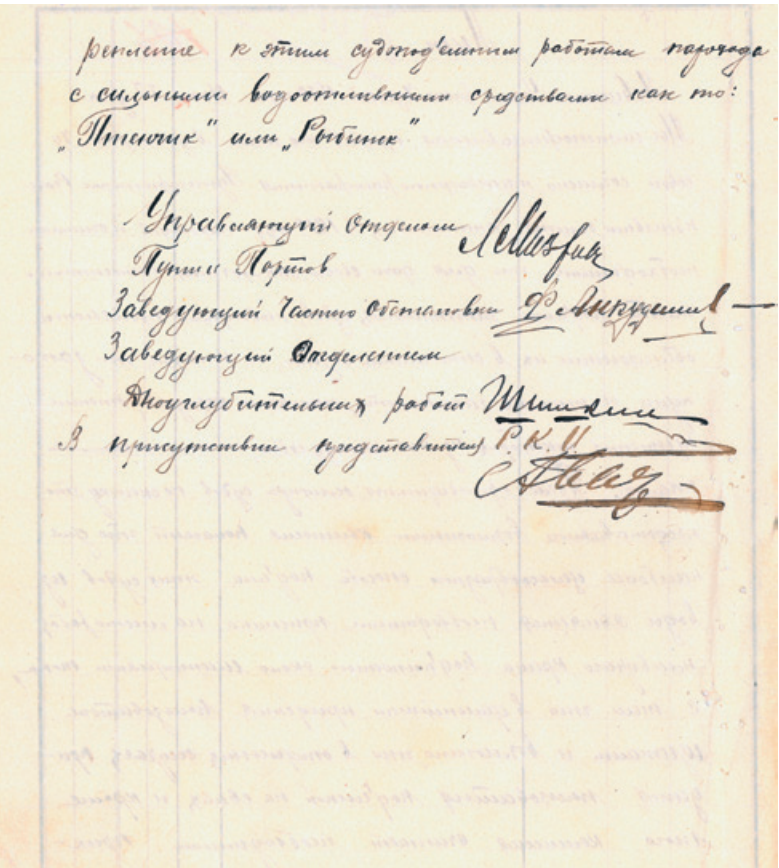 репление к этим судопод'емным работам парохода
с сильными водоотливными средствами как то:
„Птенчик" или „Рыбинск"
Управляющий Отделом
Пути и Портов
Заведующий Частью Обстановки Ф Анкудинов
Заведующий Отделением
Дноуглубительных работ Шишкин
В присутствии представителя Р. К. И